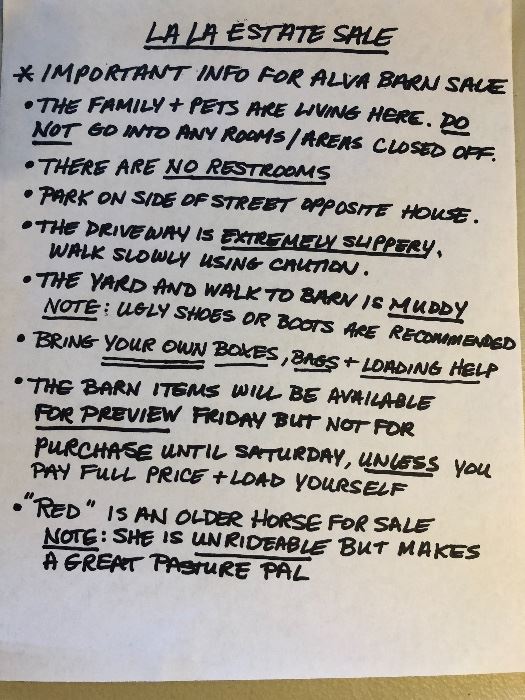 LA LA ESTATE SALE
* IMPORTANT INFO FOR ALVA BARN SALE
• THE FAMILY + PETS ARE LIVING HERE. DO
NOT GO INTO ANY ROOMS/AREAS CLOSED OFF.
• THERE ARE NO RESTROOMS
• PARK ON SIDE OF STREET OPPOSITE HOUSE.
• THE DRIVEWAY IS EXTREMELY SLIPPERY.
WALK SLOWLY USING CAUTION.
• THE YARD AND WALK TO BARN IS MUDDY
NOTE: UGLY SHOES OR BOOTS ARE RECOMMENDED
• BRING YOUR OWN BOXES, BAGS + LOADING HELP
• THE BARN ITEMS WILL BE AVAILABLE
FOR PREVIEW FRIDAY BUT NOT FOR
PURCHASE UNTIL SATURDAY, UNLESS YOU
PAY FULL PRICE + LOAD YOURSELF
• "RED" IS AN OLDER HORSE FOR SALE
NOTE: SHE IS UNRIDEABLE BUT MAKES
A GREAT PASTURE PAL